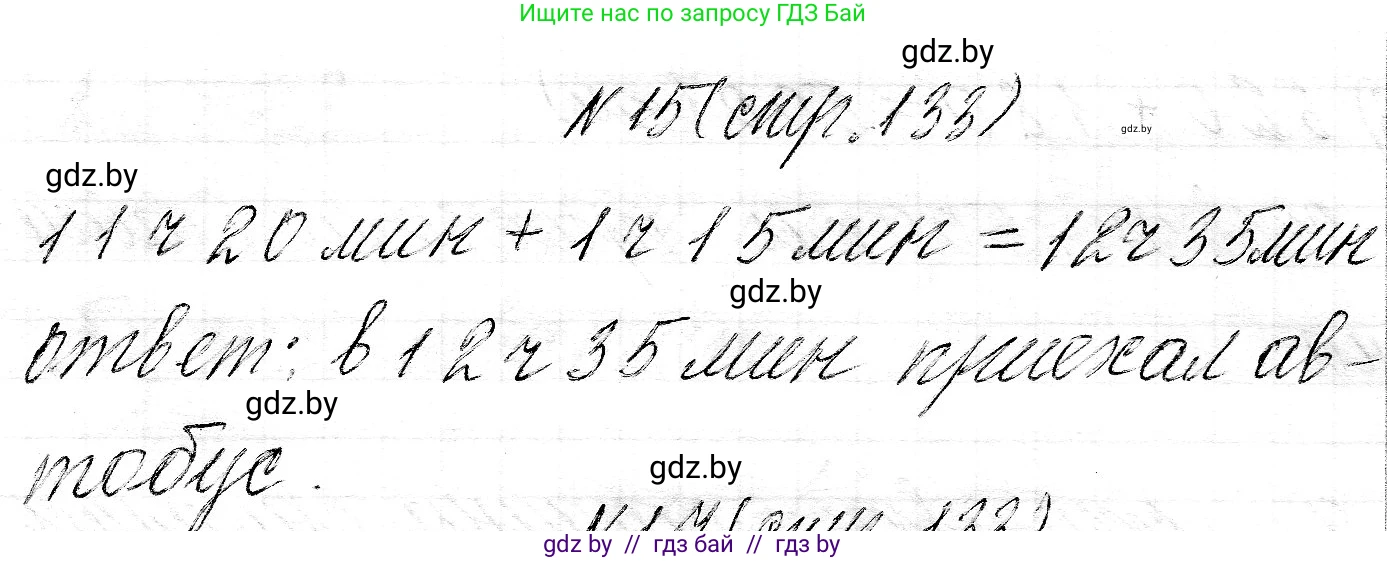 Ищите нас по запросу ГДЗ Бай
gdz.by
N 15 (стр. 133)
gdz.by
gdz.by
11 ч 20 мин + 1 ч 15 мин = 12 ч 35 мин
gdz.by
ответ: в 12 ч 35 мин приехал ав-
gdz.by
тобус.
gdz.by
gdz by // гдз бай // гдз by